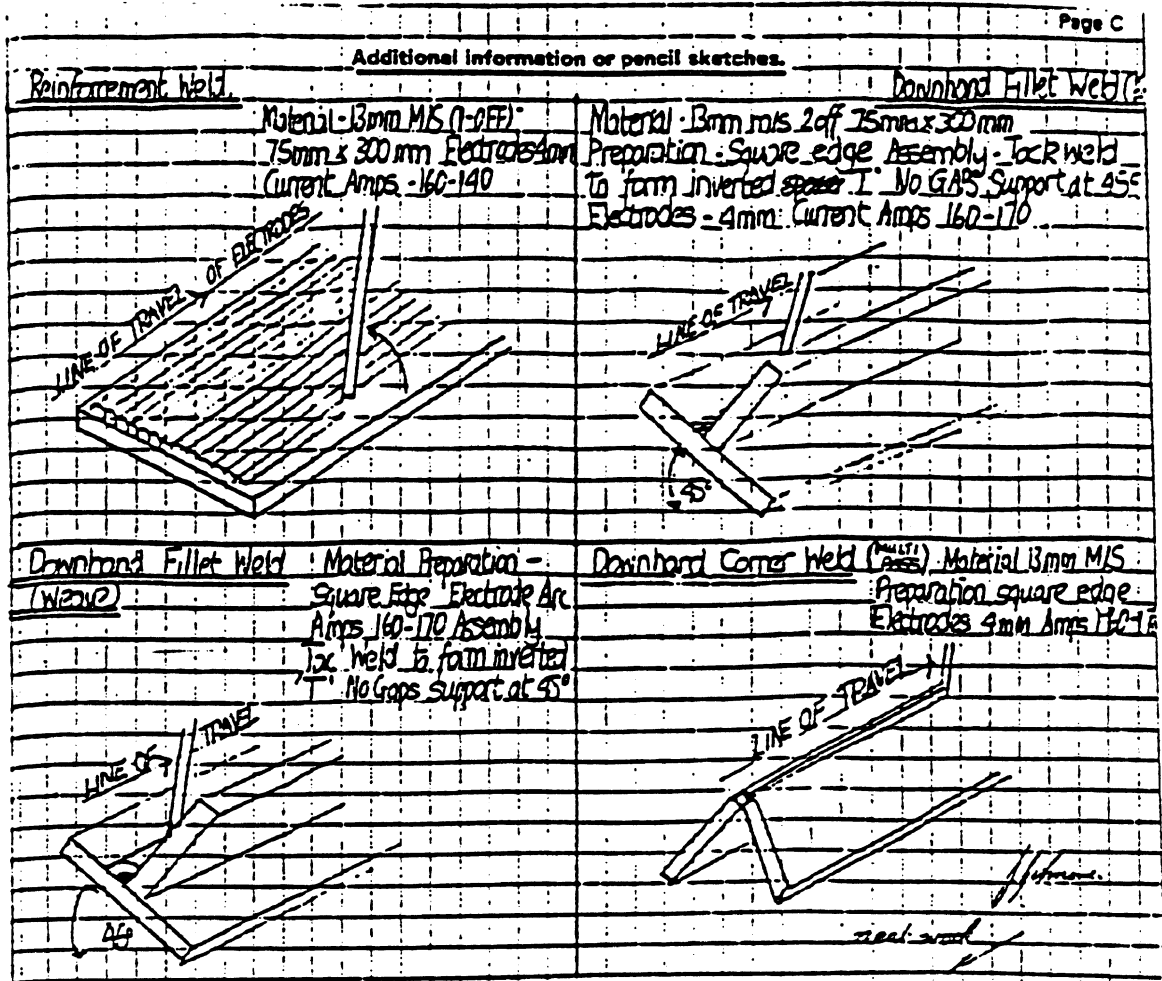 Page C
Additional information or pencil sketches.
Reinforcement Weld.
Material - 13mm M/S (1-OFF)
75mm x 300mm Electrodes 4mm
Current Amps - 160-140
LINE OF TRAVEL OF ELECTRODES
Downhand Fillet Weld
Material - 13mm m/s 2off 75mm x 300mm
Preparation - Square edge Assembly - Tack weld
to form inverted T No GAPS Support at 45°
Electrodes - 4mm Current Amps 160-170
LINE OF TRAVEL
45°
Downhand Fillet Weld
(Weave)
Material Preparation -
Square Edge Electrode Arc
Amps 160-170 Assembly
Weld to form inverted
'T' No Gaps support at 45°
LINE OF TRAVEL
Downhand Corner Weld (MULTI PASS) Material 13mm M/S
Preparation square edge
Electrodes 4mm Amps
LINE OF TRAVEL
neat work